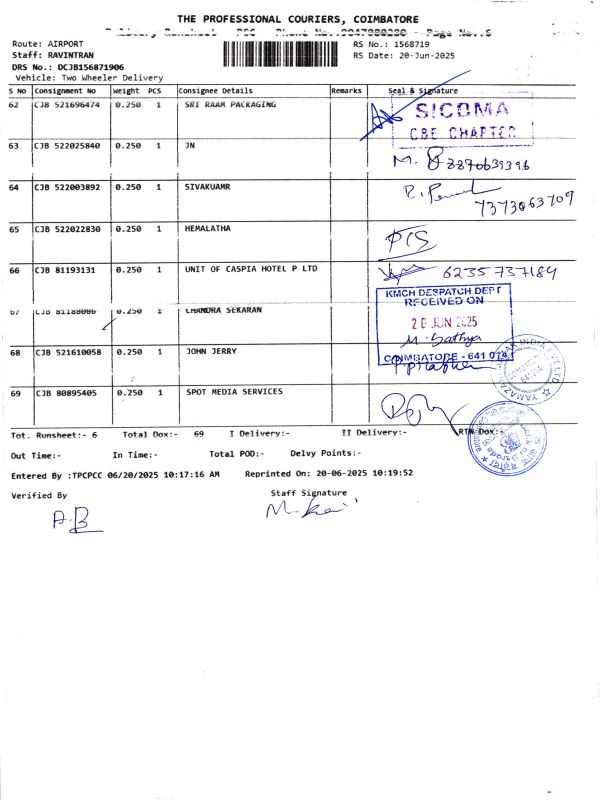 THE PROFESSIONAL COURIERS, COIMBATORE
Delivery Runsheet - POC - Phone No.:9047080280 - Page No.:6
Route: AIRPORT
Staff: RAVINTRAN
DRS No.: DCJB156871906
Vehicle: Two Wheeler Delivery
RS No.: 1568719
RS Date: 20-Jun-2025
S No Consignment No Weight PCS Consignee Details Remarks Seal & Signature
62 CJB 521696474 0.250 1 SRI RAAM PACKAGING
SICOMA
CBE CHAPTER
63 CJB 522025840 0.250 1 JN
64 CJB 522003892 0.250 1 SIVAKUAMR
7373063709
65 CJB 522022830 0.250 1 HEMALATHA
66 CJB 81193131 0.250 1 UNIT OF CASPIA HOTEL P LTD
6235737184
KMCH DESPATCH DEPT
RECEIVED ON
20 JUN 2025
M. Sathya
COIMBATORE - 641 014
67 CJB 81188086 0.250 1 CHANDRA SEKARAN
68 CJB 521610058 0.250 1 JOHN JERRY
69 CJB 80895405 0.250 1 SPOT MEDIA SERVICES
Tot. Runsheet:- 6 Total Dox:- 69 I Delivery:- II Delivery:- RTN Dox:-
Out Time:- In Time:- Total POD:- Delvy Points:-
Entered By :TPCPCC 06/20/2025 10:17:16 AM Reprinted On: 20-06-2025 10:19:52
Verified By Staff Signature
A.B